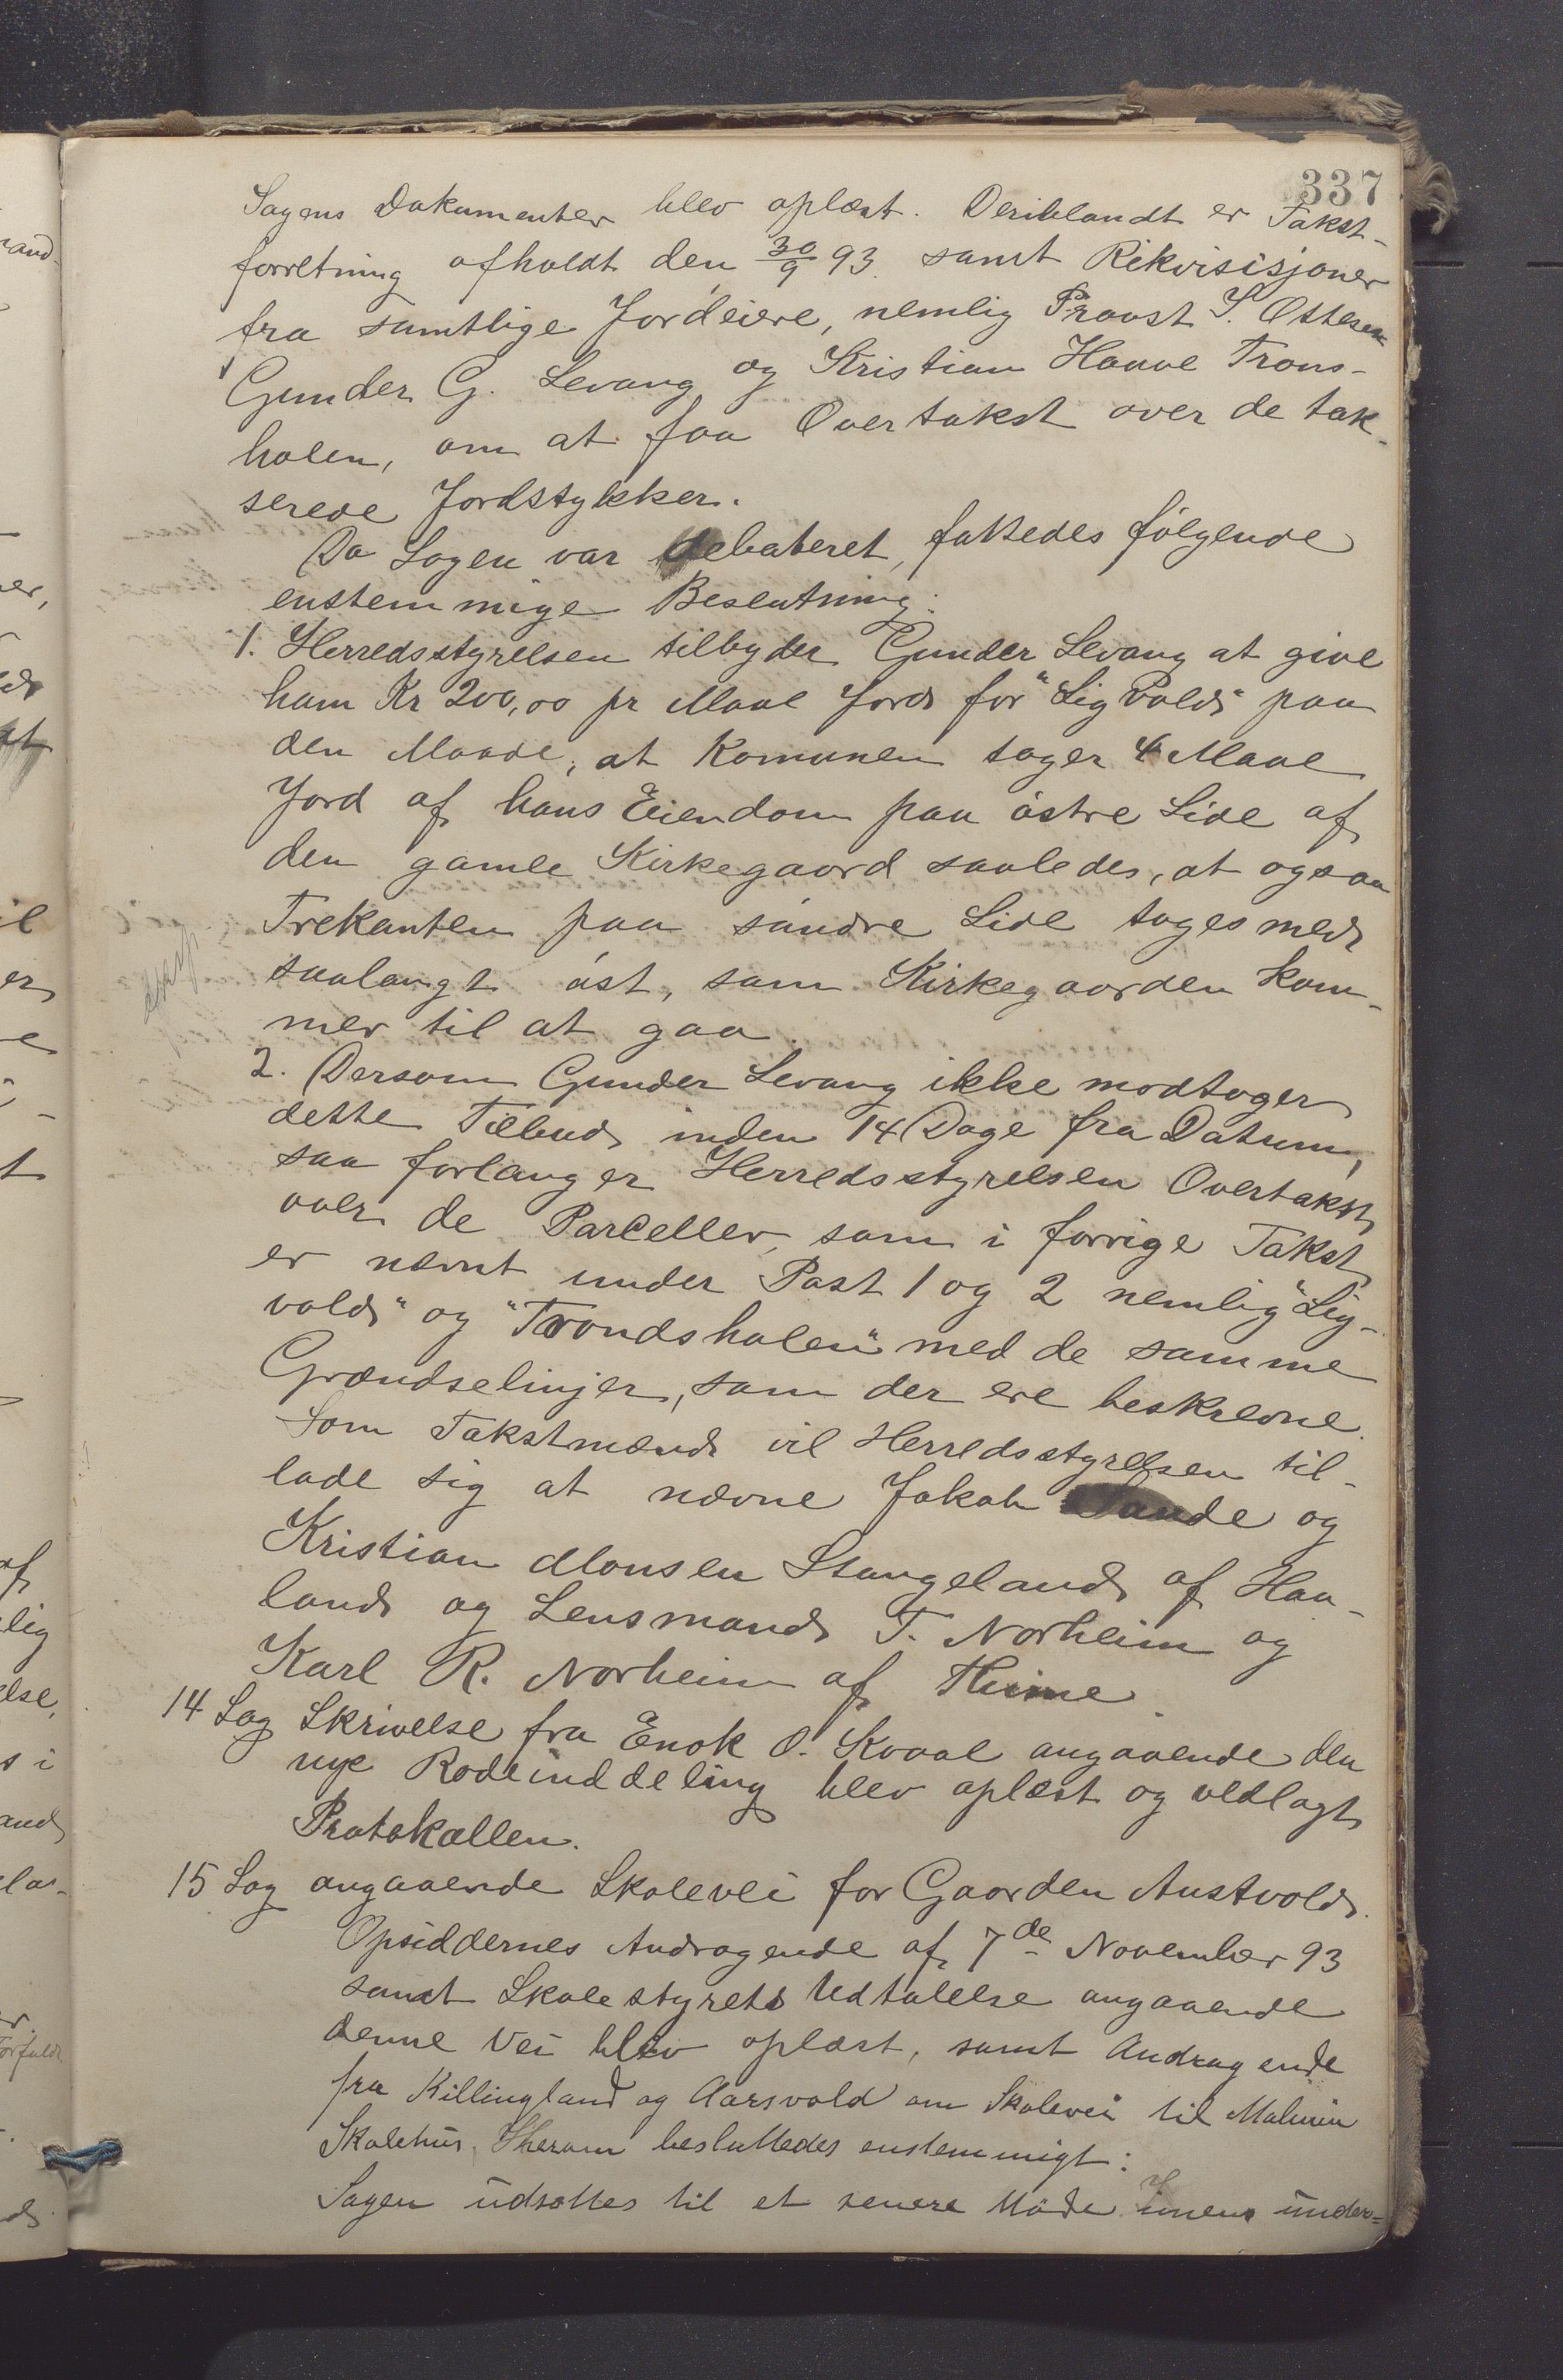 337
Sagens Dokumenter blev oplæst. Deriblandt er Takst-
forretning afholdt den 30/9 93. samt Rikvisisjoner
fra samtlige Jordeiere, nemlig Provst S. Ottesen
Gunder G. Levang og Kristian Haave Trons-
holen, om at faa Overtakst over de tak-
serede Jordstykker.
Da Sagen var debateret, fattedes følgende
enstemmige Beslutning:
1. Herredsstyrelsen tilbyder Gunder Levang at give
ham Kr 200,00 pr Maal Jord for "Ligvold" paa
den Maade, at Komunen tager 4 Maal
Jord af hans Eiendom paa østre Side af
den gamle Kirkegaard saaledes, at ogsaa
Trekanten paa søndre Side tages med
saalangt øst, som Kirkegaarden kom-
mer til at gaa.
2. Dersom Gunder Levang ikke modtager
dette Tilbud inden 14 Dage fra Datum,
saa forlanger Herredsstyrelsen Overtakst
over de Parceller, som i forrige Takst
er nævnt under Post 1 og 2 nemlig "Lig-
vold" og "Trondsholen" med de samme
Grændselinjer, som der ere beskrevne.
Som Takstmænd vil Herredsstyrelsen til-
lade sig at nævne Jakob Sande og
Kristian Monsen Stangeland af Haa-
land og Lensmand T. Norheim og
Karl R. Norheim af Thime
14 Sag Skrivelse fra Enok O. Kvaal angaaende den
nye Rodeinddeling blev oplæst og vedlagt
Protokollen.
15 Sag angaaende Skolevei for Gaarden Austvold.
Opsiddernes Andragende af 7de November 93
samt Skolestyrets Udtalelse angaaende
denne Vei blev oplæst, samt Andragende
fra Killingland og Aarsvold om Skolevei til Malmin
Skolehus. Herom besluttedes enstemmigt:
Sagen udsættes til et senere Møde under-